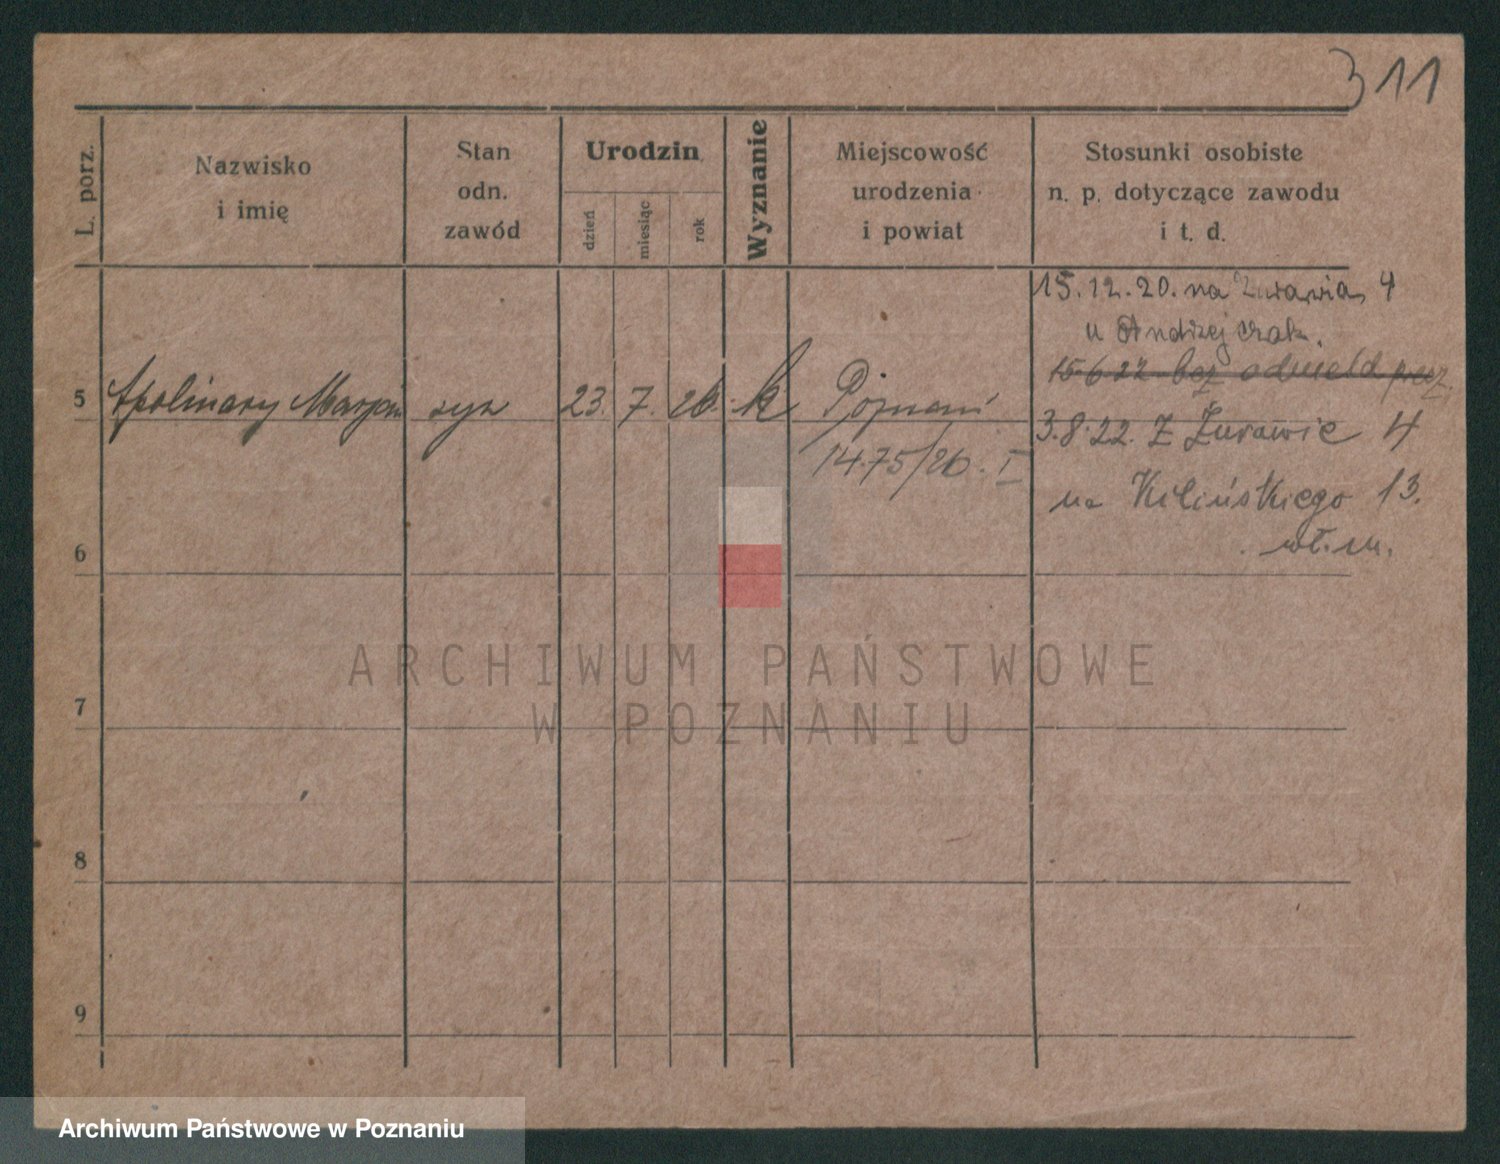 311
L. porz.
Nazwisko
i imię
Stan
odn.
zawód
Urodzin
dzień
miesiąc
rok
Wyznanie
Miejscowość
urodzenia
i powiat
Stosunki osobiste
n. p. dotyczące zawodu
i t. d.
15.12.20. na Żurawia 4
u Andrzejczak.
15 6 22 bez odmeld
5 Apolinary Marjan syn 23. 7. 26. k Poznań
3.8.22. Z Żurawie 4
1475/26. I
na Kilińskiego 13.
wł. m.
6
7
8
9
ARCHIWUM PAŃSTWOWE
W POZNANIU
Archiwum Państwowe w Poznaniu